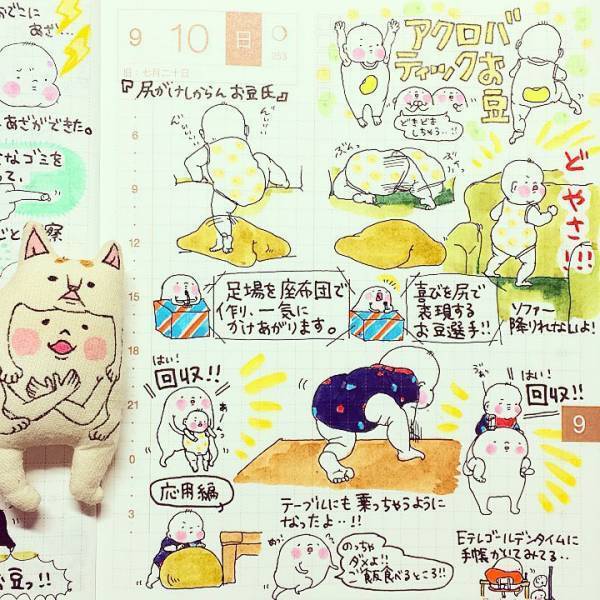 おでこに
あざ…
あざができた。
なゴミを
って、
9 10 日
旧 七月二十日
253
『尻がけしからんお豆氏』
アクロバ
ティックお
豆
どきどき
しちゃう…!!
6
9
12
15
18
21
0
3
ど
や
さ!!!
足場を座布団で
作り、一気に
かけあがります。
喜びを尻で
表現する
お豆選手!!
ソファー
降りれないよ!
はい!
回収!!
はい!
回収!!
9
応用編
テーブルにも乗っちゃうように
なったよ…!!
のっちゃ
ダメよ!!
ご飯食べるところ!!
Eテレゴールデンタイムに
手帳かいてみてる…
お豆っ!!